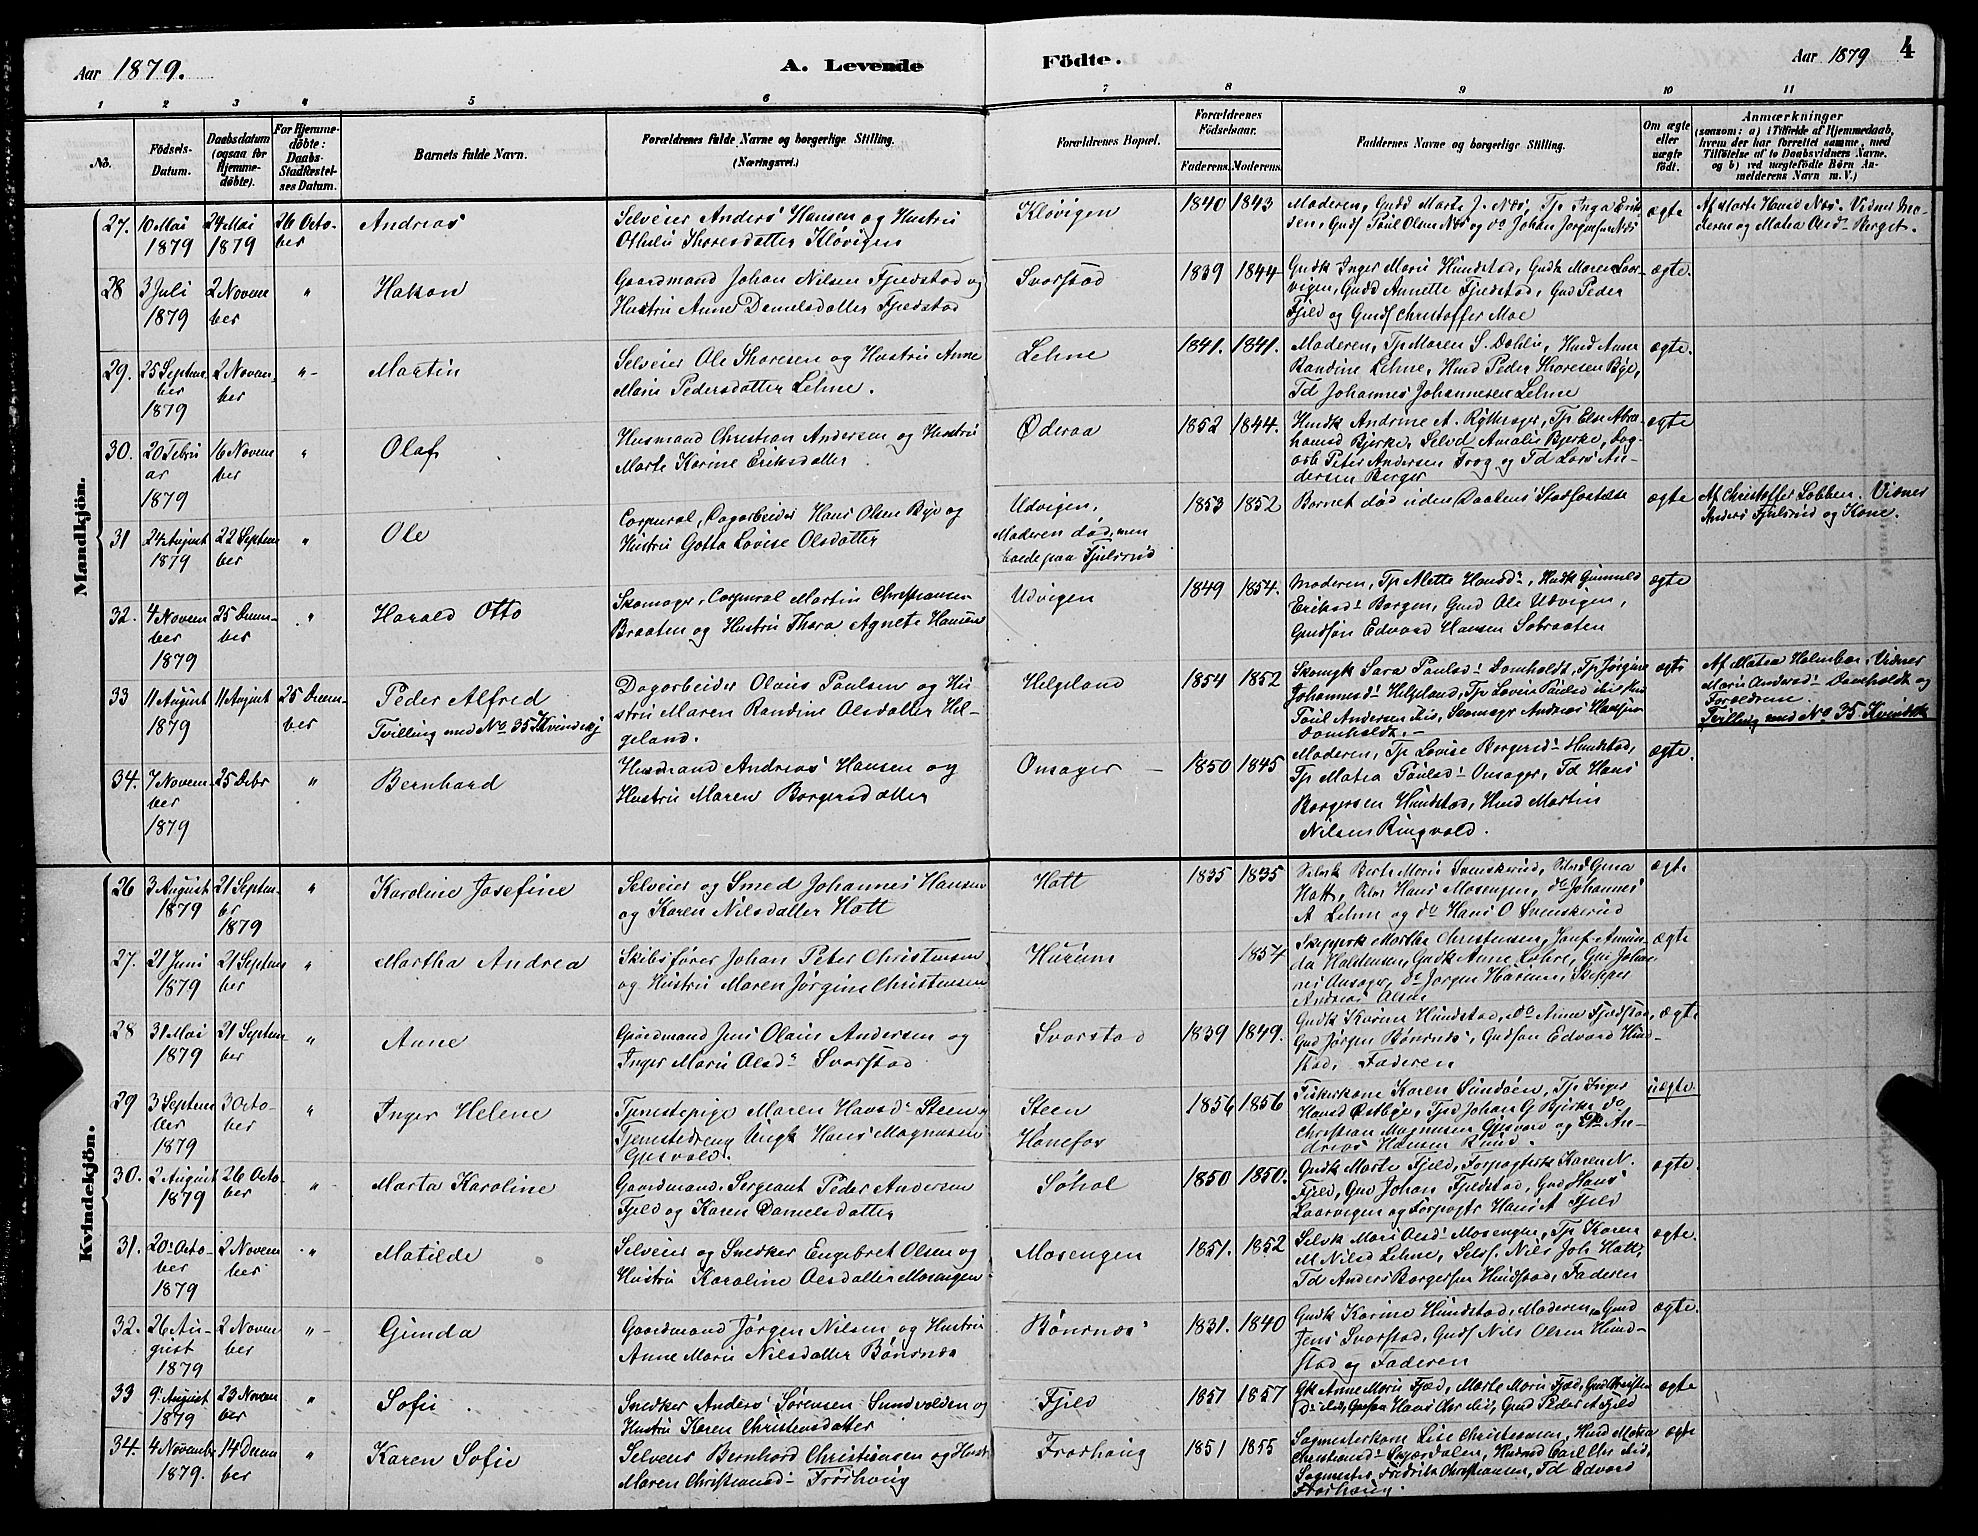 Aar 1879.
A. Levende
Födte.
Aar 1879
4
1 2 3 4 5 6 7 8 9 10 11
No.
Födsels-
Datum.
Daabsdatum
(ogsaa for
Hjemme-
döbte).
For Hjemme-
döbte:
Daabs-
Stadfæstel-
ses Datum.
Barnets fulde Navn.
Forældrenes fulde Navne og borgerlige Stilling.
(Næringsvei.)
Forældrenes Bopæl.
Forældrenes
Födselsaar.
Faderens. Moderens.
Faddernes Navne og borgerlige Stilling.
Om ægte
eller
uægte
födt.
Anmærkninger
(saasom: a) i Tilfælde af Hjemmedaab,
hvem der har forrettet samme, med
Tilföielse af to Daabsvidners Navne,
og b) ved uægtefödte Börn An-
melderens Navn m. V.)
Mandkjön.
27. 10 Mai
1879
24 Mai
1879
26 Octo-
ber
Andreas
Selveier Anders Hansen og Hustru
Thoresdatter Kløvigen
Kløvigen
1840 1843
Moderen, Marte J. Næs, Tp Inga Erik
sen, Gudf Poul Olsen Næs og do Johan Jørgensen Næs
ægte
Af Marte Næs. Vidner Mo-
deren og Matea Berget.
28 3 Juli
1879
2 Novem
ber
"
Hakon
Gaardmand Johan Nilsen Fjeldstad og
Hustru Anne Danielsdatter Fjeldstad
Svarstad
1839 1844
Gudk Inger Marie Hundstad, Gudk Maren Laar-
vigen, Gudd Annette Fjeldstad, Gud Peder
Fjeld og Gudf Christoffer Moe
ægte.
29. 25 Septem
ber
1879
2 Novem
ber
"
Martin
Selveier Ole Thoresen og Hustru Anne
Marie Pedersdatter Lehne.
Lehne
1841. 1841.
Moderen, Tp Maren S. Dahlen, Anne
Randine Lehne, Peder Thoresen Bye,
Td Johannes Johannesen Lehne
ægte.
30. 20 Febru
ar
1879
16 Novem
ber
"
Olaf
Husmand Christian Andersen og Hustru
Marte Karine Eriksdatter
Øderaa
1852 1844.
Husk Andrine A. Tp Else Abra
hamsd Bjerke, Selvd Amalie Bjerke, Dag-
arb Peter Andersen Frog og Td Lars An-
dersen Berger
ægte
31 24 August
1879
22 Septem
ber
"
Ole
Corporal, Dagarbeider Hans Olsen Bye og
Hustru Gotta Lovise Olsdatter
Udvigen,
Moderen død, men
boede paa Fjulsrud
1853 1852
Barnet død uden Daabens Stadfæstelse
ægte
Af Christoffer Lobben. Vidner
Anders Fjulsrud og Kone.
32. 4 Novem
ber
1879
25 Decem-
ber
"
Harald Otto
Skomager, Corporal Martin Christiansen
Braaten og Hustru Thora Agnete Hansen
Udvigen
1849 1854.
Moderen, Tp Alette Hansd:, Husk Gunnild
Eriksd: Borgen, Gmd Ole Udvigen,
Gmdsøn Edvard Hansen Sobraaten
ægte
33 11 August
1879
11 August 25 Decem-
ber
Peder Alfred
Tvilling med No 35 Kvindekj
Dagarbeider Olaus Paulsen og Hu
stru Maren Randine Olsdatter Hel-
geland.
Helgeland
1854 1852
Skomgk Sara Paulsd: Domholdt, Tp Jørgine
Johannesd: Helgeland, Tp Lovise Paulsd
Poul Andersen Skomager Andreas Hansen
Domholdt.
ægte
Af Matea Holmboe. Vidner
Marie Domholdt og
Forældrene
Tvilling med No 35. Kvindek
34. 7 Novem-
ber
1879
25 Decbr
"
Bernhard
Husmand Andreas Hansen og
Hustru Maren Borgersdatter
Onsager
1850 1845
Moderen, Tp Lovise Borgersd: Hundstad,
Tp Matea Poulsd: Onsager, Td Hans
Borgersen Hundstad, Martin
Nilsen Ringvold.
ægte.
Kvindekjön.
26 3 August
1879
21 Septem-
br
1879
"
Karoline Josefine
Selveier og Smed Johannes Hansen
og Karen Nilsdatter Hatt
Hatt
1835 1835
Selvk Berte Marie Svenskerud, Selvd Gina
Hatt, Selv Hans Mosengen, do Johannes
A Lehne og do Hans O Svenskerud
ægte
27. 21 Juni
1879
21 Septem
ber
"
Martha Andrea
Skibsfører Johan Peter Christensen
og Hustru Maren Jørgine Christensen
Hurum
1854
Skipperk Martha Christensen, Jomf. Amun-
da Haldensen, Gudk Anne Lehne, Gm Johan
nes Onsager, do Jørgen Hurum, Skipper
Andreas Olsen
ægte
28 31 Mai
1879
21 Septem
ber
"
Anne
Gaardmand Jens Olaus Andersen og
Inger Marie Olsd: Svarstad
Svarstad
1839 1849.
Gudk Karine Hundstad, do Anne Fjeldstad,
Gud Jørgen Bønsnæs, Gudsøn Edvard Hund-
stad, Faderen
ægte
29 3 Septem
ber
1879
3 Octo-
ber
"
Inger Helene
Tjenestepige Maren Hansd: Steen og
Tjenestedreng Ungk Hans Magnusen
Gjesvold.
Steen
Hønefos
1856 1856
Fiskerkone Karen Sundøen, Tp Inger
Hansd Østbye, Johan G Bjerke do
Christian Magnusen Gjesvold og An-
dreas Hansen Rund.
uægte
30. 2 August
1879
26 Octo-
ber
"
Marta Karoline
Gaardmand, Sergeant Peder Andersen
Fjeld og Karen Danielsdatter
Søhol
1850 1850.
Gudk Marte Fjeld, Forpagterk Karen N.
Fjeld, Gud Johan Fjeldstad, Gud Hans
Laarvigen og Forpagter Hans A Fjeld
ægte.
31. 20 Octo-
ber
1879
2 Novem
ber
"
Matilde
Selveier og Snedker Engebret Olsen og
Hustru Karoline Olsdatter Mosengen
Mosengen
1851. 1852
Selvk Mari Olsd: Mosengen, Tp Karen
M Nilsd Lehne, Selvf. Nils Joh Hatt,
Td Anders Borgersen Hundstad, Faderen
ægte.
32. 26 Au-
gust
1879
2 Novem
ber
"
Gunda
Gaardmand Jørgen Nilsen og Hustru
Anne Marie Nilsdatter Bønsnæs
Bønsnæs
1831. 1840
Gudk Karine Hundstad, Moderen, Gmd
Jens Svarstad, Gudf Nils Olsen Hund-
stad og Faderen
ægte.
33 9 August
1879
23 Novem
ber
"
Sofie
Snedker Anders Sørensen Sundvolden og
Hustru Karen Christensdatter
Fjeld
1851 1857
Gk Anne Marie Fjeld, Marte Marie Fjeld, Gud Christen
Hans Gud Peder A Fjeld
ægte
34. 4 Novembr
1879.
14 Decem
ber
"
Karen Sofie
Selveier Bernhard Christiansen og Hustr
Maren Christiansd: Frørhaug
Frørhaug
1851 1855
Sagmesterkone Lise Christiansen, Matea
Christiansd: Gjærdalen, Carl Chr
Sagmester Fredrik Christiansen, Td Edvard
Frørhaug.
ægte